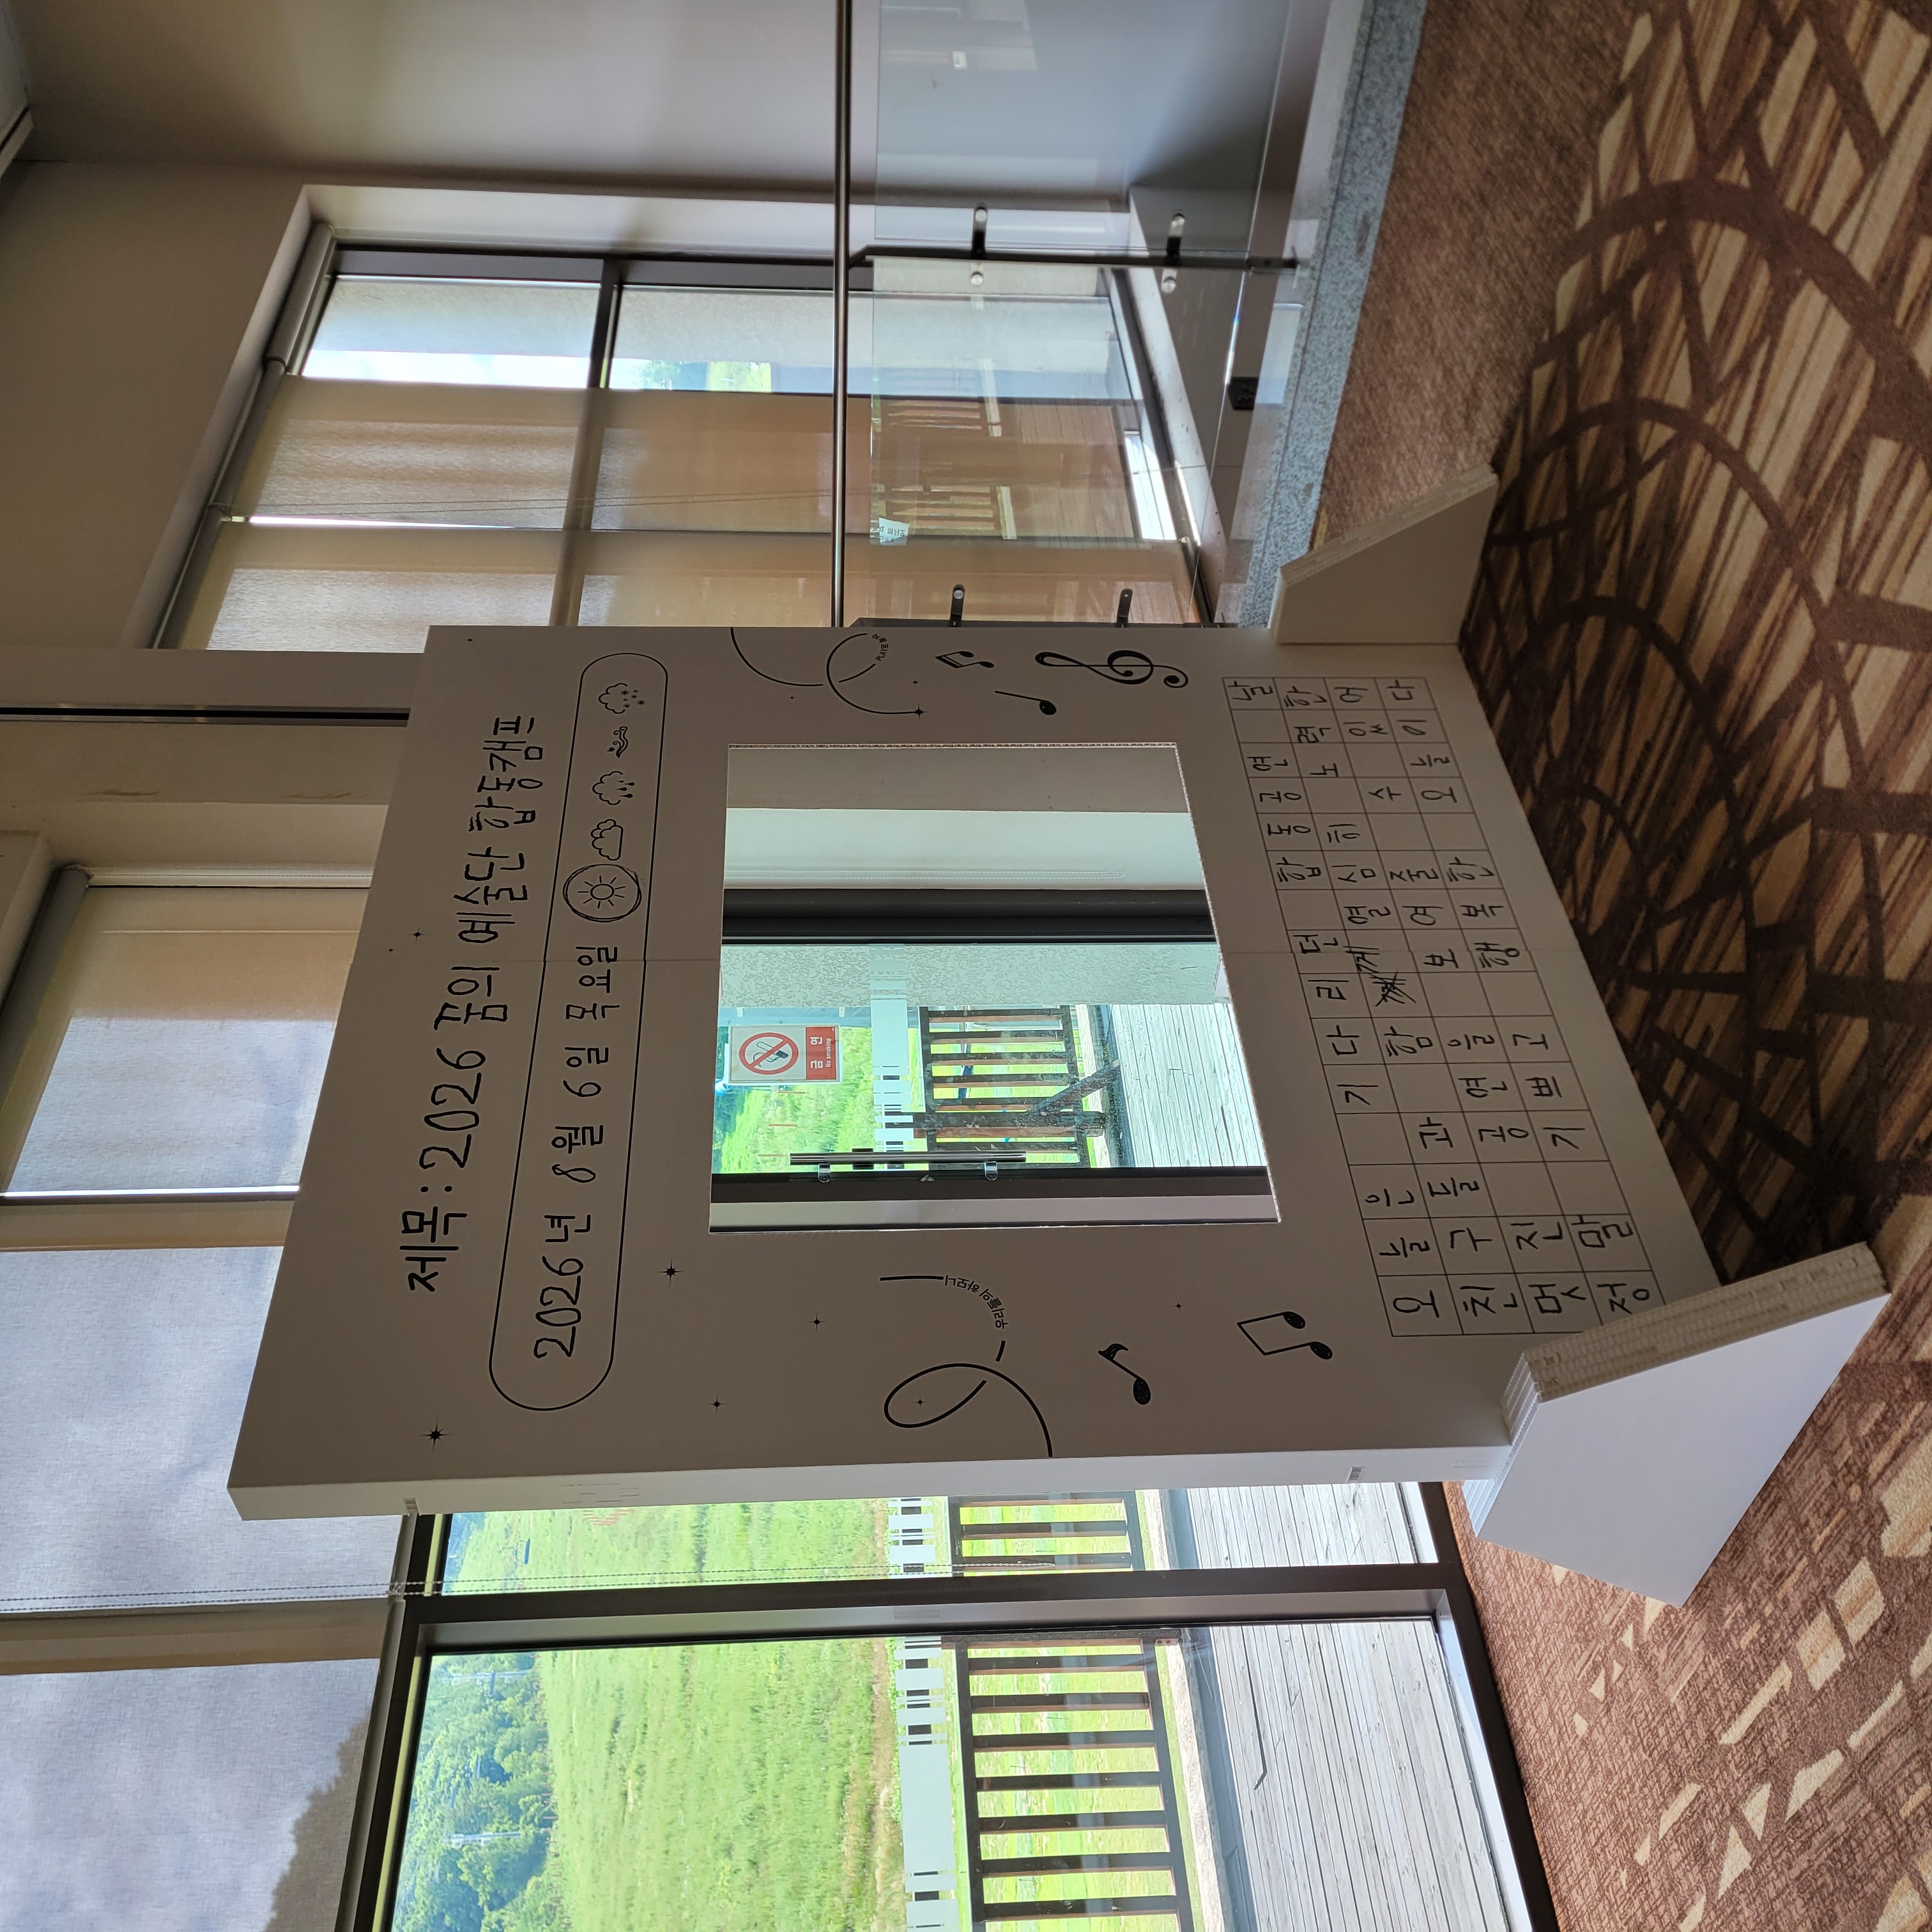 제목:2026 꿈의 예술단 합동캠프
2026년 8월 6일 목요일
우리들의 하모니
금연
No smoking
오늘은 기다리던 합동공연 날
친구들과 함께 열심히 노력한
멋진 공연을 보여줄 수 있어
정말 기쁘고 행복한 오늘이다